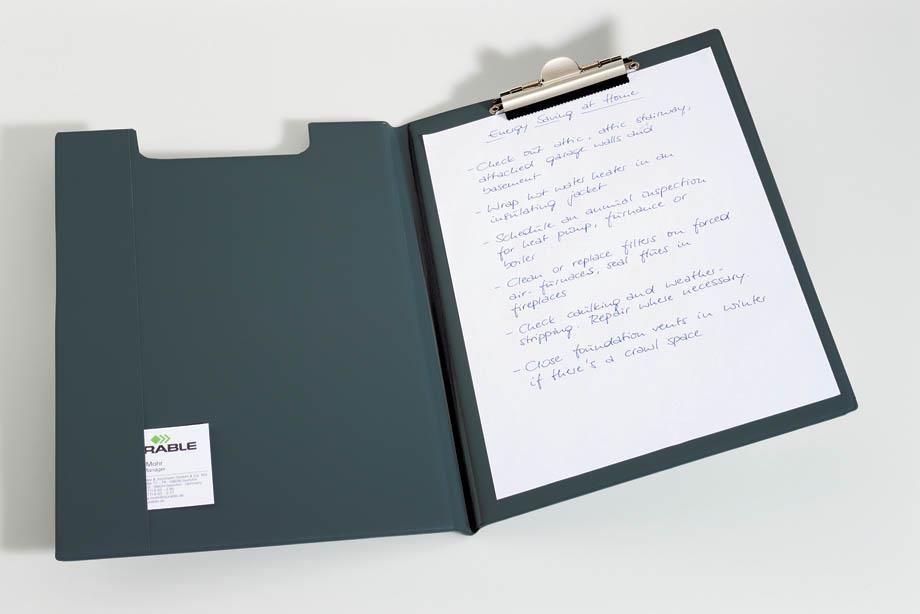 Energy Saving at Home
- Check out attic, attic stairway,
attached garage walls and
basement
- Wrap hot water heater in an
insulating jacket
- Schedule an annual inspection
for heat pump, furnance or
boiler
- Clean or replace filters on forced
air-furnaces, seal flues in
fireplaces
- Check caulking and weather-
stripping. Repair where necessary.
- Close foundation vents in winter
if there's a crawl space
RABLE
Mohr
Manager